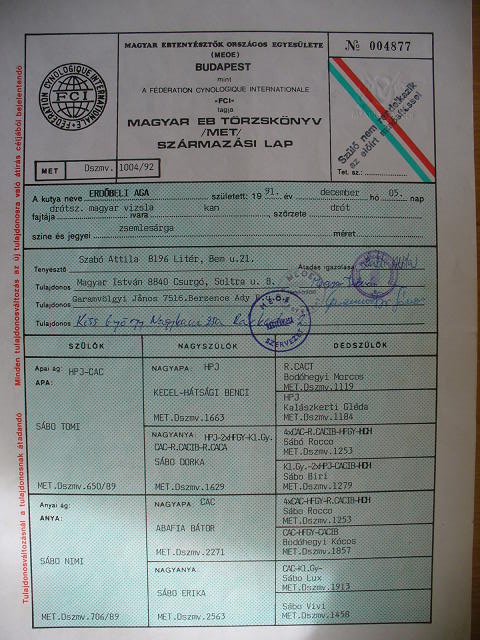 MAGYAR EBTENYÉSZTŐK ORSZÁGOS EGYESÜLETE
(MEOE)
BUDAPEST
mint
A FÉDÉRATION CYNOLOGIQUE INTERNATIONALE
«FCI»
tagja
MAGYAR EB TÖRZSKÖNYV
/MET/
SZÁRMAZÁSI LAP
FÉDÉRATION CYNOLOGIQUE INTERNATIONALE
FCI
№ 004877
Szülő nem rendelkezik
az előírt minősítéssel
Tet. sz.:
MET Dszmv. 1004/92
A kutya neve ERDŐBÉLI AGA született: 19 91. év december hó 05. nap
fajtája drótsz. magyar vizsla ivara kan szőrzete drót
színe és jegyei zsemlesárga méret
Tenyésztő Szabó Attila 8196 Litér, Bem u.21. Átadás igazolása
Tulajdonos Magyar István 8840 Csurgó, Soltra u. 8.
Tulajdonos Garamvölgyi János 7516.Berzence Ady
Tulajdonos Kiss György Nagykanizsa
SZÜLŐK NAGYSZÜLŐK DÉDSZÜLŐK
Apai ág: HPJ-CAC
APA:
SÁBO TOMI
MET.Dszmv.650/89
NAGYAPA: HPJ
KECEL-HÁTSÁGI BENCI
MET.Dszmv.1663
R.CACT
Bodóhegyi Marcos
MET.Dszmv.1119
HPJ
Kalászkerti Gléda
MET.Dszmv.1184
NAGYANYA: HPJ-2xHFGY-Kl.Gy.
CAC-R.CACIB-R.CACA
SÁBO DORKA
MET.Dszmv.1629
4xCAC-R.CACIB-HFGY-HCH
Sábó Rocco
MET.Dszmv.1253
Kl.Gy.-2xHPJ-CACIB-HCH
Sábo Biri
MET.Dszmv.1279
Anyai ág:
ANYA:
SÁBO NIMI
MET.Dszmv.706/89
NAGYAPA: CAC
ABAFIA BÁTOR
MET.Dszmv.2271
4xCAC-HFGY-R.CACIB-HCH
Sábo Rocco
MET.Dszmv.1253
CAC-HFGY-CACIB
Bodóhegyi Kócos
MET.Dszmv.1857
NAGYANYA:
SÁBO ERIKA
MET.Dszmv.2563
CAC-Kl.Gy-
Sábo Lux
MET.Dszmv.1913
Sábo Vivi
MET.Dszmv.1458
Tulajdonosváltozásnál a tulajdonosnak átadandó Minden tulajdonosváltozás az új tulajdonosra való átírás céljából bejelentendő